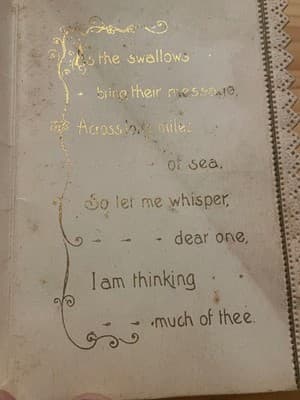 As the swallows
bring their message,
Across long miles
of sea.
So let me whisper,
dear one,
I am thinking
much of thee.